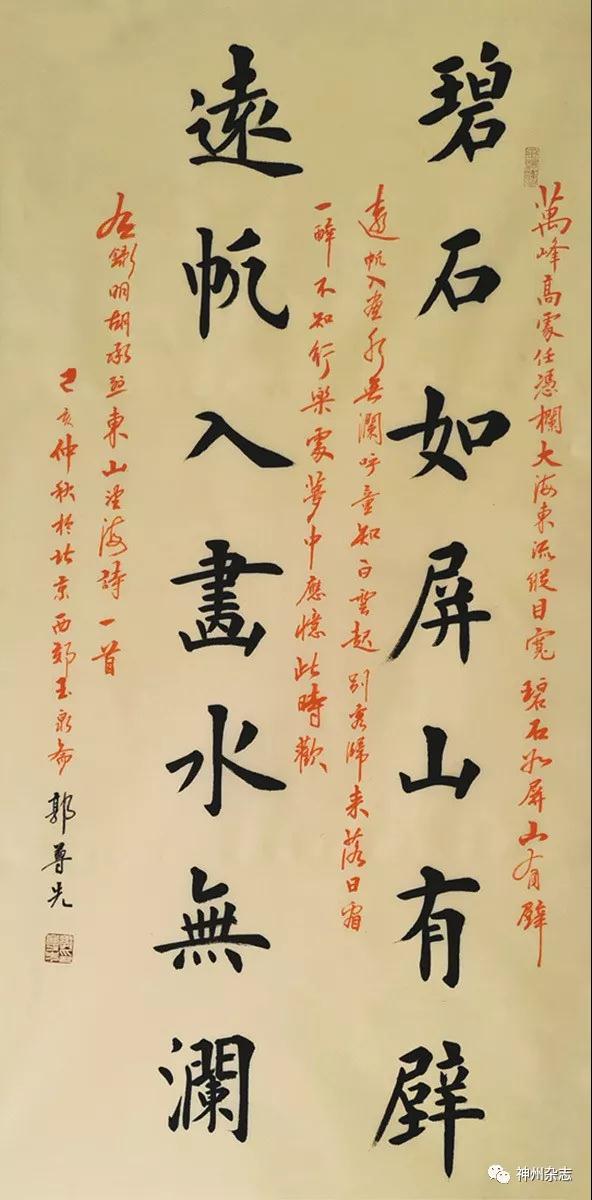 萬峰高處任憑欄大海東流縱目寬碧石如屏山有壁
碧石如屏山有壁
遠帆入畫水無瀾呼童知白雲起别客歸来落日
一醉不知行樂處夢中應憶此時歡
遠帆入畫水無瀾
右錄明胡承熙東山望海詩一首
己亥仲秋於北京西郊玉泉齋 郭尊先
神州杂志